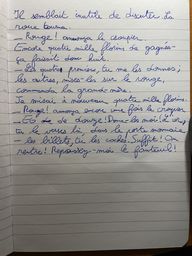 Il semblait inutile de discuter. La
roue tourna.
– Rouge ! annonça le croupier.
Encore quatre mille florins de gagnés
ça faisait donc huit.
– les quatre premiers, tu me les donnes,
les autres, mises-les sur le rouge,
commanda la grand-mère.
Je misai à nouveau quatre mille florins.
– Rouge ! annonça encore une fois le croupier
– Et de douze ! Donne-les moi ! L'or,
tu le verses là, dans le porte monnaie
– les billets, tu les caches. Suffit ! On
rentre ! Repoussez-moi le fauteuil !